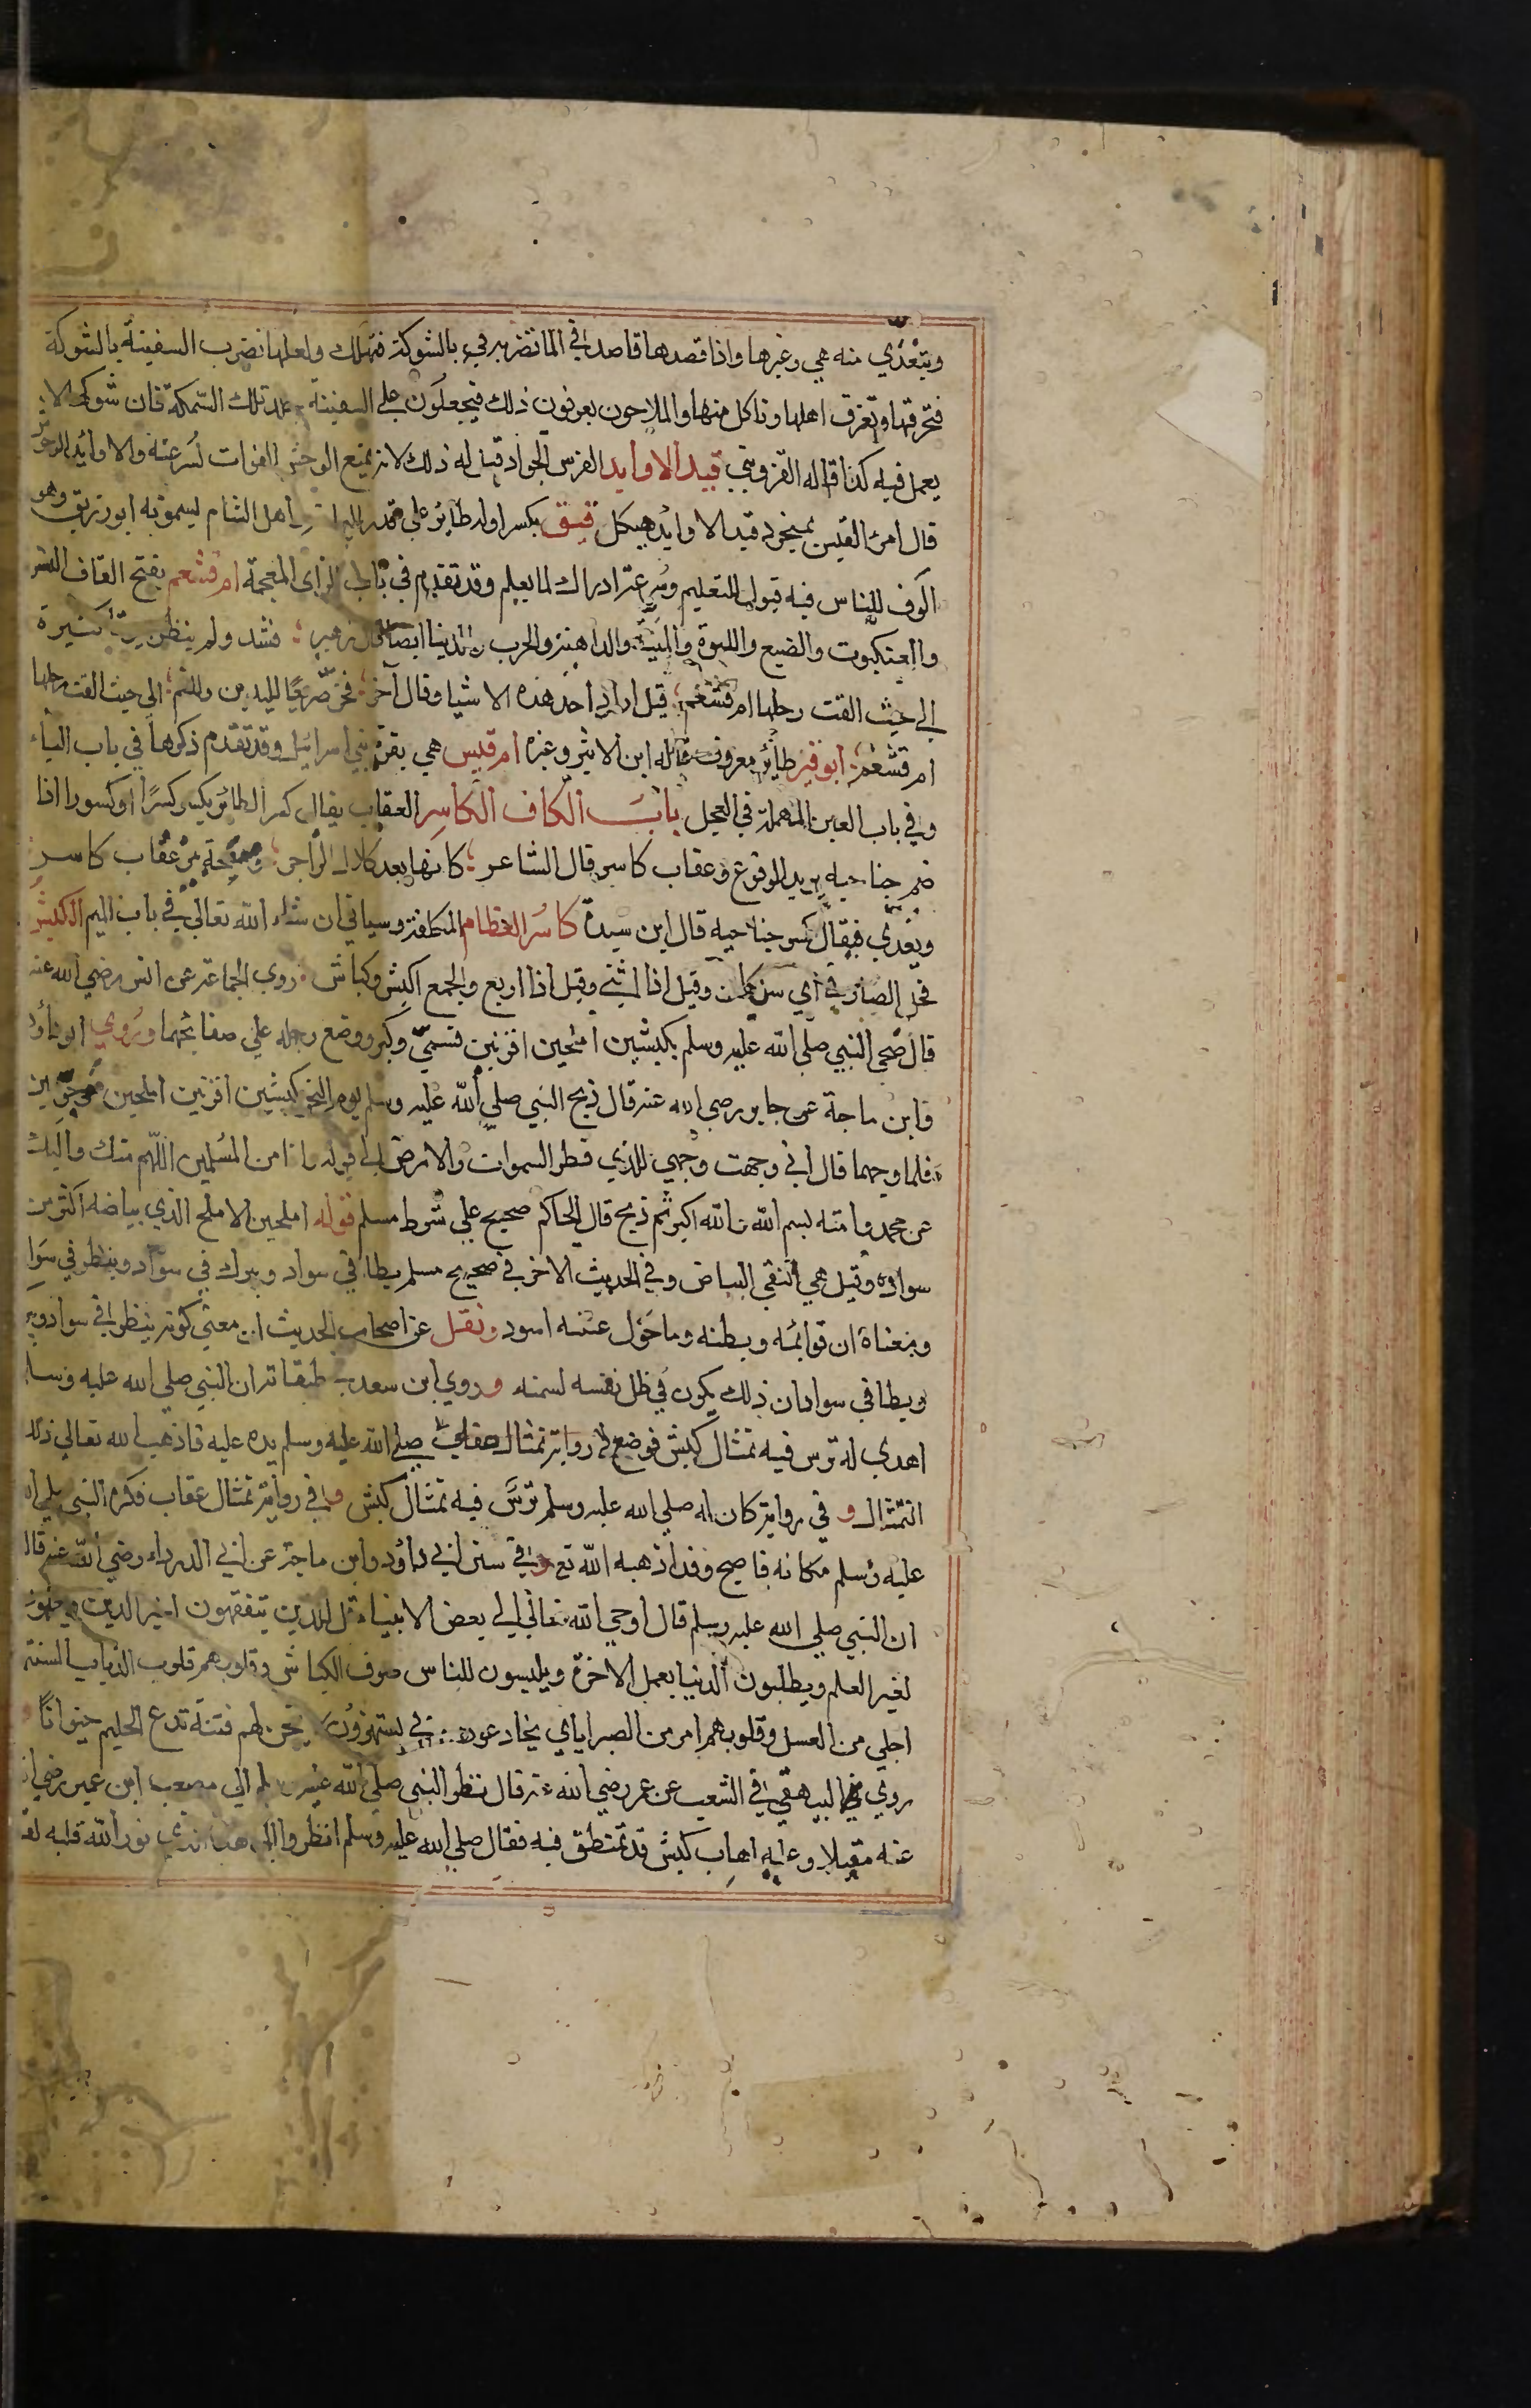 ويتعذي منه هي وغيرها واذا قصدها قاصد في الما تضربه في بالشوكة فتهلك ولعلها تضرب السفينة بالشوكة
فتحرقها وتغرق اهلها وتاكل منها والملاحون يعرفون ذلك فيجعلون علي السفينة جلد تلك السمكة فان شوكها لا
يعمل فيه كذا قاله القزويني قيد الاوابد الفرس الجواد قيل له ذلك لانه يمنع الوحش الفوات لسرعته والاوابد الوحش
قال امرئ القيس بمنجرد قيد الاوابد هيكل قيق بكسر اوله طائر علي قدر اهل الشام يسمونه ابو زريق وهو
الوف للناس فيه قبول للتعليم وسرعة ادراك لما يعلم وقد تقدم في باب الزاي المعجمة ام قشعم بفتح القاف النسر
والعنكبوت والضبع واللبوة والمنية والداهية والحرب والدنيا ايضا قال زهير فشد ولم ينظر بيوتا كثيرة
الي حيث القت رحلها ام قشعم قيل اراد احد هذه الاشيا وقال اخر فخر صريعا لليدين وللفم الي حيث القت رحلها
ام قشعم ابو قير طائر معروف قاله ابن الاثير وغيره ام قيس هي بقرة بني اسرائيل وقد تقدم ذكرها في باب الباء
وفي باب العين المهملة في العجل باب الكاف الكاسر العقاب يقال كسر الطائر يكسر كسرا وكسورا اذا
ضم جناحيه يريد الوقوع وعقاب كاسر قال الشاعر كانها بعد كلال الزاجر ومسحة من عقاب كاسر
ويعدي فيقال كسر جناحيه قال ابن سيدة كاسر العظام المكلفة وسياتي ان شاء الله تعالي في باب الميم الكبش
فحل الضان في اي سن كان وقيل اذا اثني وقيل اذا اربع والجمع اكبش وكباش روي الجماعة عن انس رضي الله عنه
قال ضحي النبي صلي الله عليه وسلم بكبشين املحين اقرنين فسمي وكبر ووضع رجله علي صفايحهما وروي ابو داؤد
وابن ماجة عن جابر رضي الله عنه قال ذبح النبي صلي الله عليه وسلم يوم النحر كبشين اقرنين املحين موجوين
فلما وجهما قال اني وجهت وجهي للذي فطر السموات والارض الي قوله وانا من المسلمين اللهم منك واليك
عن محمد وامته بسم الله والله اكبر ثم ذبح قال الحاكم صحيح علي شرط مسلم قوله املحين الاملح الذي بياضه اكثر من
سواده وقيل هي النقي البياض وفي الحديث الاخر في صحيح مسلم يطا في سواد ويبرك في سواد وينظر في سوا
ومعناه ان قوائمه وبطنه وما حول عينيه اسود ونقل عن اصحاب الحديث ان معني كونه ينظر في سواد ويبر
ويطا في سواد ان ذلك يكون في ظل نفسه لسمنه وروي ابن سعد طبقاته ان النبي صلي الله عليه وسلم
اهدي له ترس فيه تمثال كبش فوضع رواية تمثال عقاب صلي الله عليه وسلم يده عليه فاذهب الله تعالي ذلك
التمثال و في رواية كان له صلي الله عليه وسلم ترس فيه تمثال كبش وفي رواية تمثال عقاب فكره النبي صلي الله
عليه وسلم مكانه فاصبح وقد اذهبه الله تع وفي سنن ابي داؤد وابن ماجة عن ابي الدرداء رضي الله عنه قال
ان النبي صلي الله عليه وسلم قال اوحي الله تعالي الي بعض الانبياء قل للذين يتفقهون لغير الدين
لغير العلم ويطلبون الدنيا بعمل الاخرة ويلبسون للناس صوف الكباش وقلوبهم قلوب الذياب السنته
احلي من العسل وقلوبهم امر من الصبر اياي يخادعون بي يستهزؤن لهم فتنة تدع الحليم حيرانا
روي البيهقي في الشعب عن عمر رضي الله عنه قال نظر النبي صلي الله عليه وسلم الي مصعب ابن عمير رضي الله
عنه مقبلا وعليه اهاب كبش قد تمنطق فيه فقال صلي الله عليه وسلم انظروا الي هذا الذي نور الله قلبه لقد